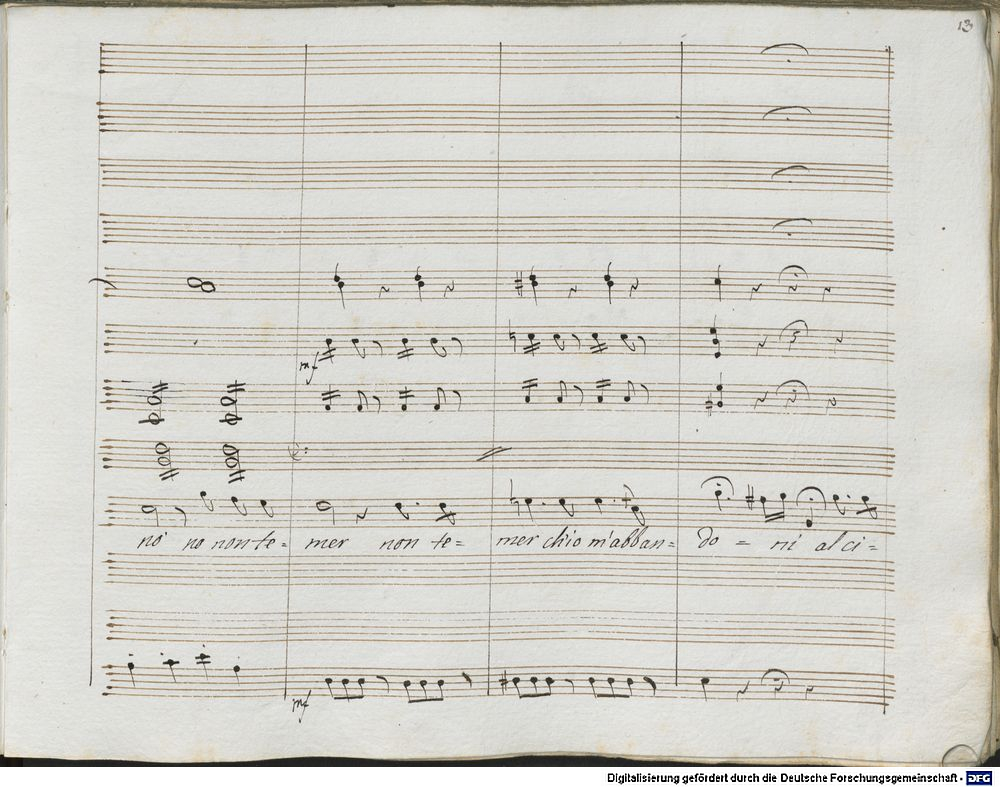 13
mf
nò no non te= mer non te= mer ch'io m'abban= do = ni al ci=
mf
Digitalisierung gefördert durch die Deutsche Forschungsgemeinschaft - DFG